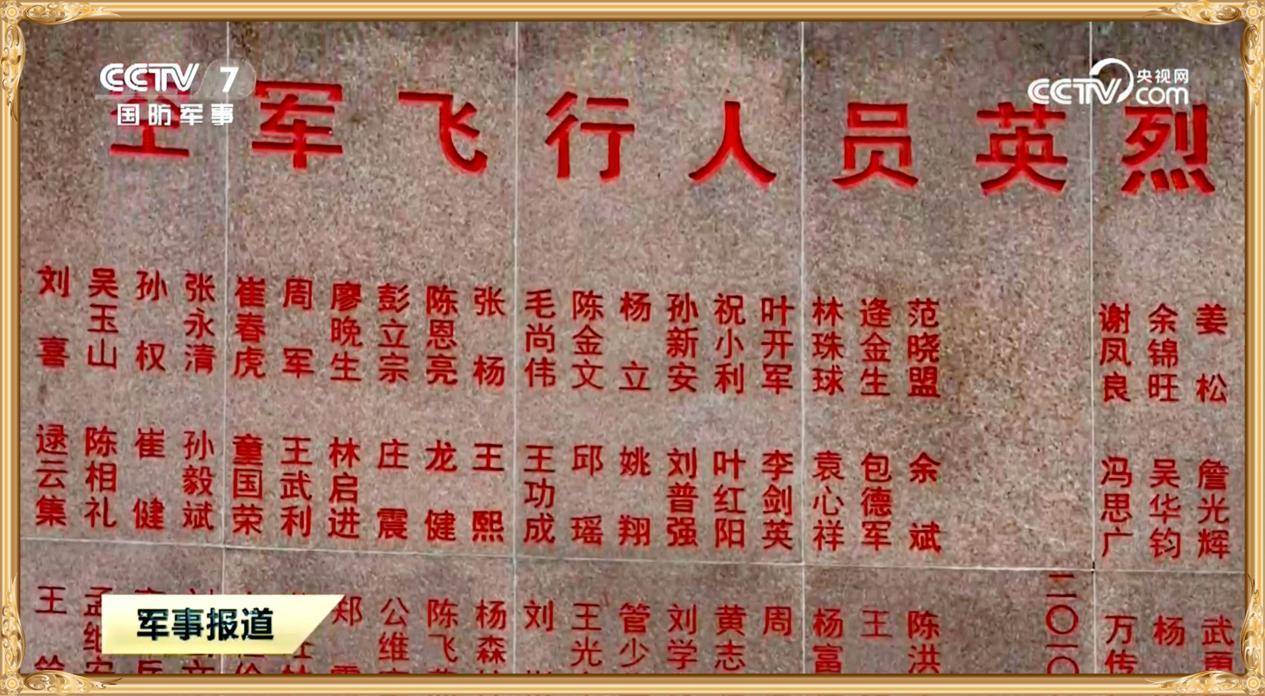 CCTV 7
国防军事
央视网
CCTV.com
空军飞行人员英烈
刘喜 吴玉山 孙权 张永清 崔春虎 周军 廖晚生 彭立宗 陈恩亮 张杨 毛尚伟 陈金文 杨立 孙新安 祝小利 叶开军 林珠球 逄金生 范晓盟 谢凤良 余锦旺 姜松
逯云集 陈相礼 崔健 孙毅斌 童国荣 王武利 林启进 庄震 龙健 王熙 王功成 邱瑶 姚翔 刘普强 叶红阳 李剑英 袁心祥 包德军 余斌 冯思广 吴华钧 詹光辉
王 郑 公维 陈飞 杨森 刘 王光 管少 刘学 黄志 周 杨富 王 陈洪 二〇一〇 万传 杨 武
军事报道